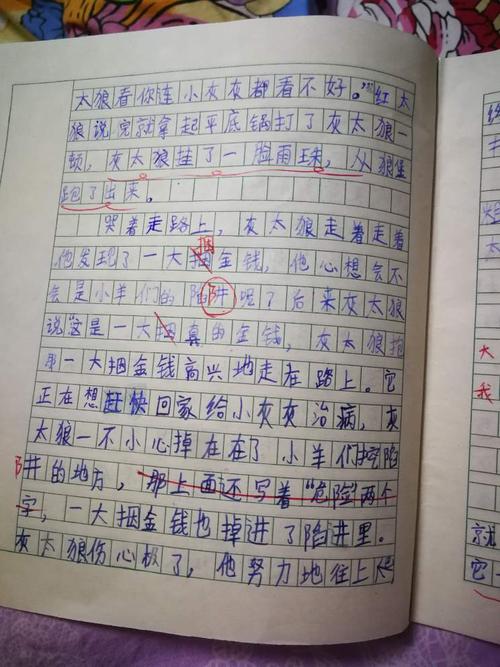 太狼看你连小灰灰都看不好。"红太
狼说完就拿起平底锅打了灰太狼一
顿，灰太狼挂了一脸雨珠，从狼堡
跑了出来。
哭着走路上，灰太狼走着走着
他发现了一大捆金钱，他心想会不
会是小羊们的陷阱呢？后来灰太狼
说"这是一大捆真的金钱，灰太狼抱
那一大捆金钱高兴地走在路上。它
正在想赶快回家给小灰灰治病，灰
太狼一不小心掉在在了小羊们挖陷
阱的地方，那上面还写着"危险"两个
字，一大捆金钱也掉进了陷阱里。
灰太狼伤心极了，他努力地往上爬
大
我
它一